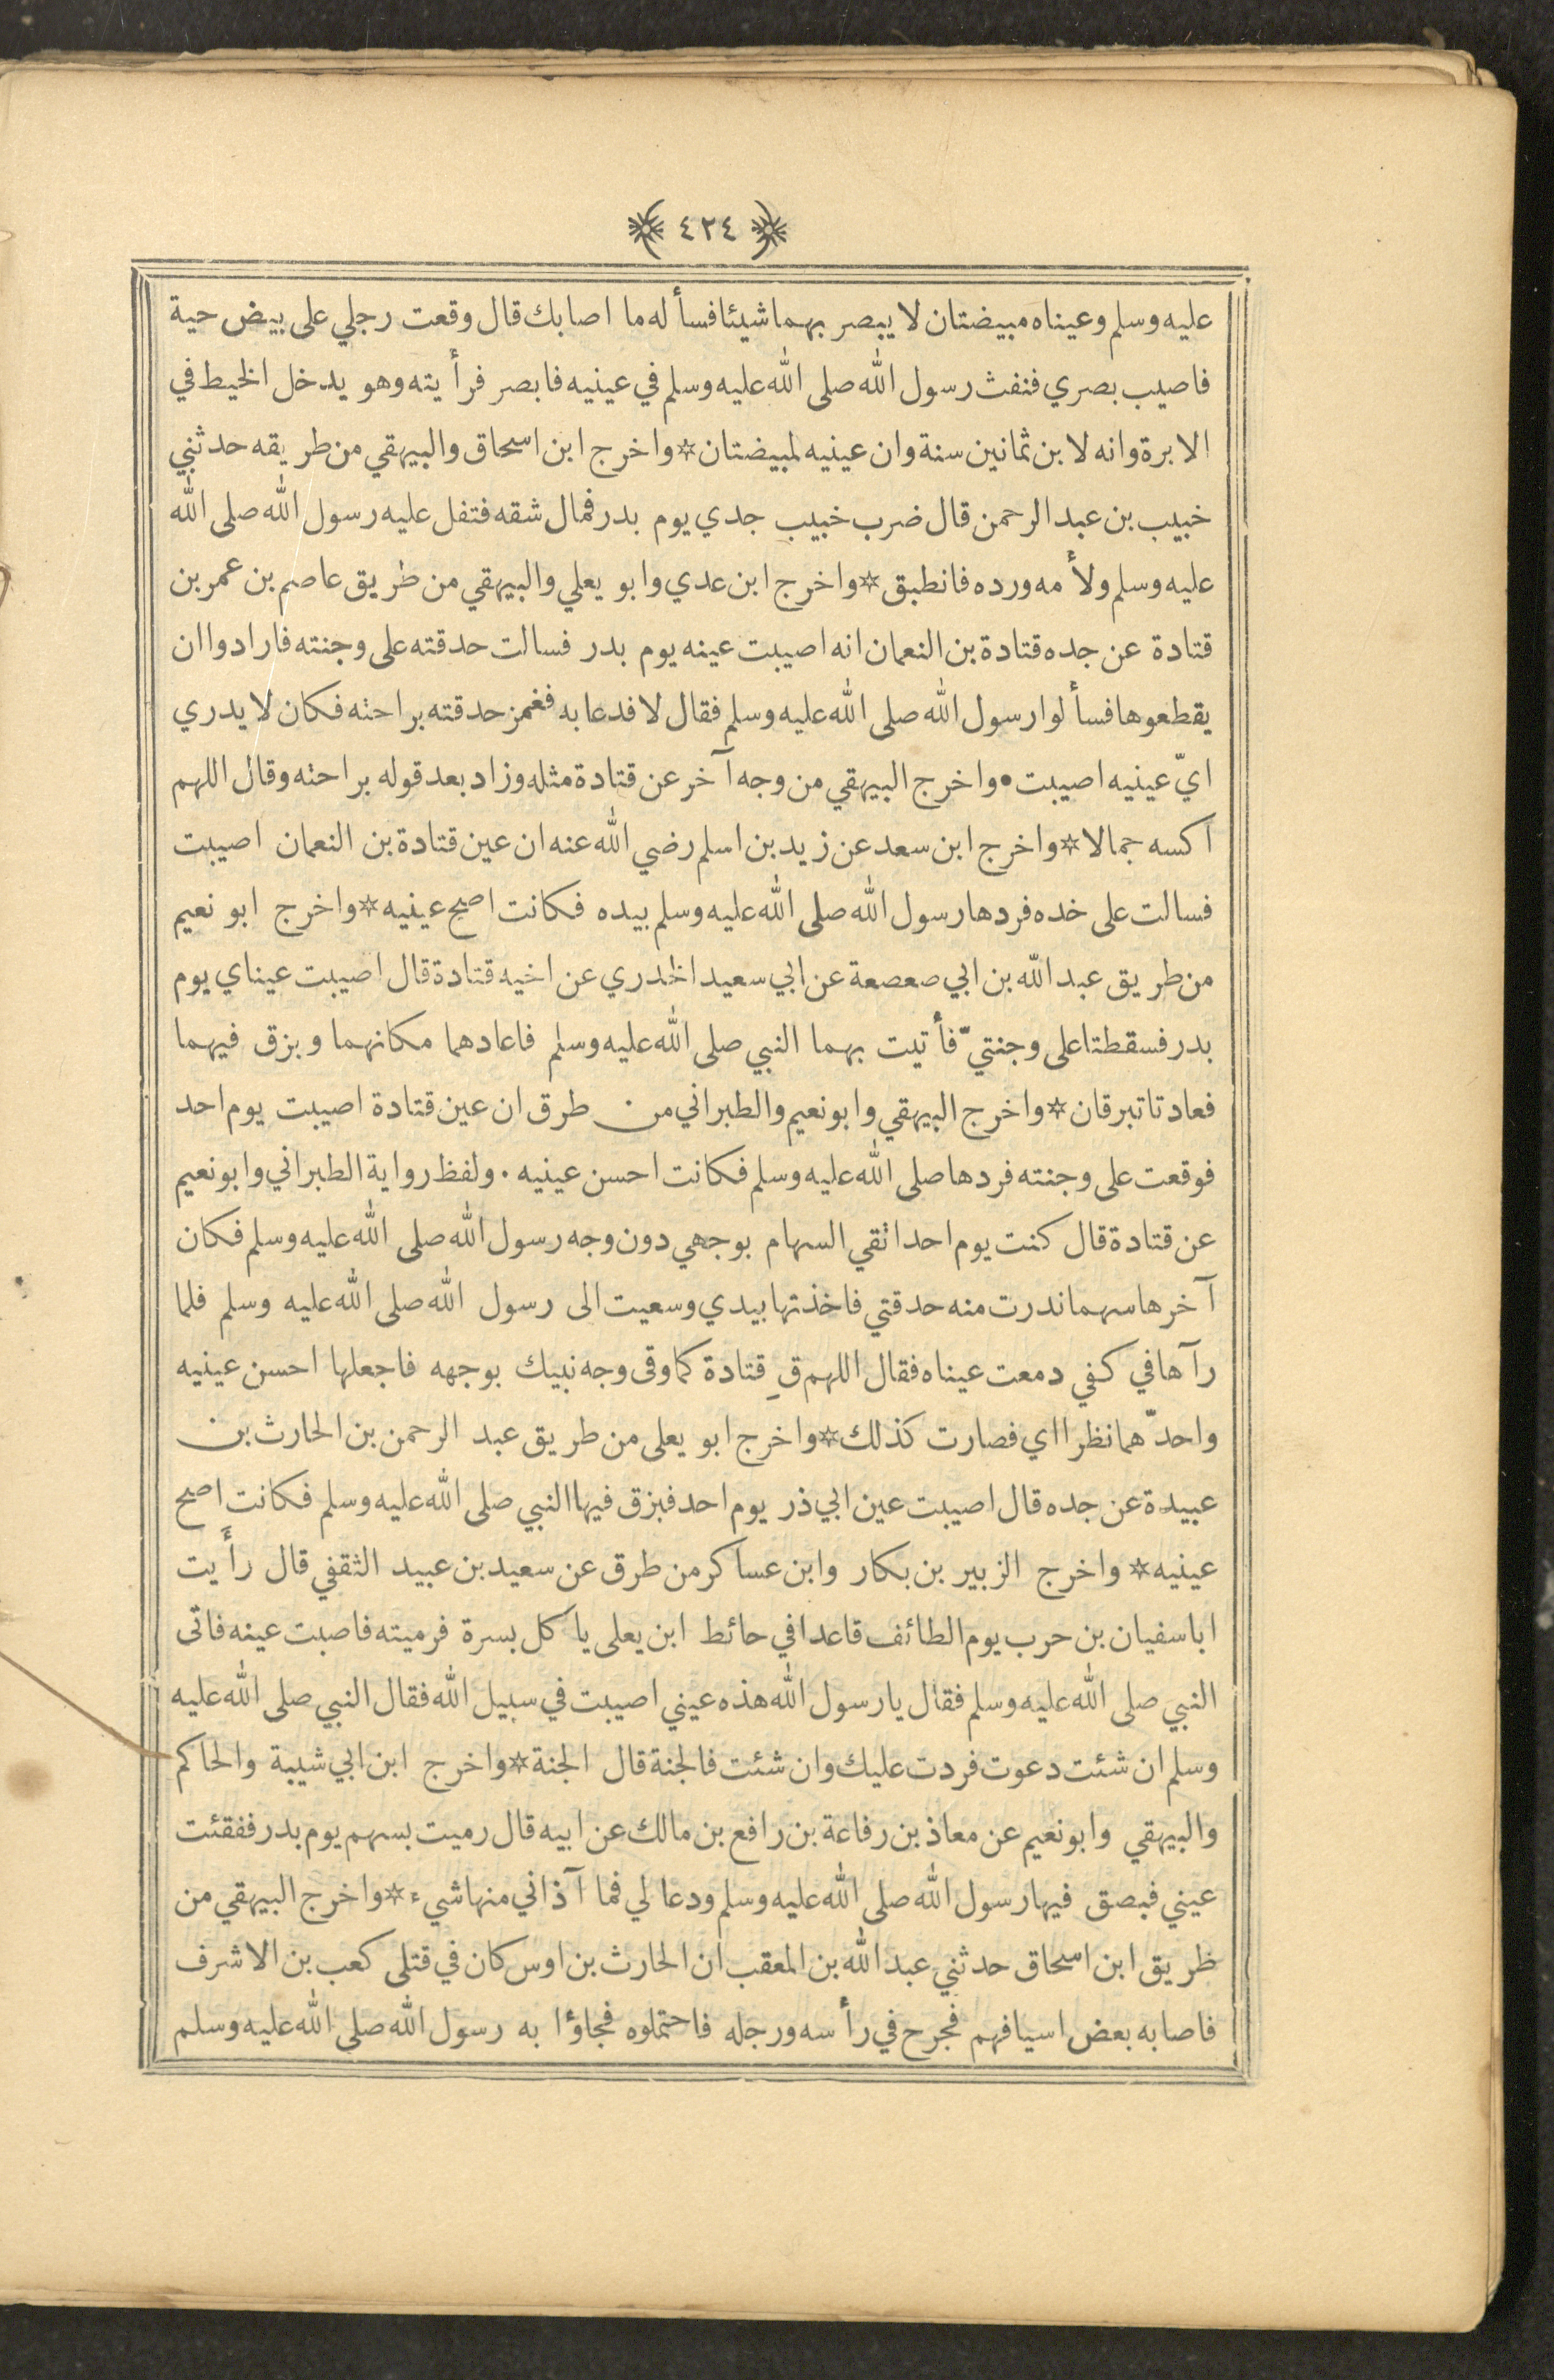 ٤٢٤
عليه وسلم وعيناه مبيضتان لا يبصر بهما شيئا فسأله ما اصابك قال وقعت رجلي على بيض حية
فاصيب بصري فنفث رسول الله صلى الله عليه وسلم في عينيه فابصر فرأيته وهو يدخل الخيط في
الابرة وانه لابن ثمانين سنة وان عينيه لمبيضتان * واخرج ابن اسحاق والبيهقي من طريقه حدثني
خبيب بن عبد الرحمن قال ضرب خبيب جدي يوم بدر فمال شقه فتفل عليه رسول الله صلى الله
عليه وسلم ولأمه ورده فانطبق * واخرج ابن عدي وابو يعلي والبيهقي من طريق عاصم بن عمر بن
قتادة عن جده قتادة بن النعمان انه اصيبت عينه يوم بدر فسالت حدقته على وجنته فارادوا ان
يقطعوها فسألوا رسول الله صلى الله عليه وسلم فقال لا فدعا به فغمز حدقته براحته فكان لا يدري
ايّ عينيه اصيبت • واخرج البيهقي من وجه آخر عن قتادة مثله وزاد بعد قوله براحته وقال اللهم
اكسه جمالا * واخرج ابن سعد عن زيد بن اسلم رضي الله عنه ان عين قتادة بن النعمان اصيبت
فسالت على خده فردها رسول الله صلى الله عليه وسلم بيده فكانت اصح عينيه * واخرج ابو نعيم
من طريق عبد الله بن ابي صعصعة عن ابي سعيد الخدري عن اخيه قتادة قال اصيبت عيناي يوم
بدر فسقطتا على وجنتيّ فأتيت بهما النبي صلى الله عليه وسلم فاعادهما مكانهما وبزق فيهما
فعادتا تبرقان * واخرج البيهقي وابو نعيم والطبراني من طرق ان عين قتادة اصيبت يوم احد
فوقعت على وجنته فردها صلى الله عليه وسلم فكانت احسن عينيه . ولفظ رواية الطبراني وابو نعيم
عن قتادة قال كنت يوم احد اتقي السهام بوجهي دون وجه رسول الله صلى الله عليه وسلم فكان
آخرها سهما ندرت منه حدقتي فاخذتها بيدي وسعيت الى رسول الله صلى الله عليه وسلم فلما
رآها في كفي دمعت عيناه فقال اللهم قِ قتادة كما وقى وجه نبيك بوجهه فاجعلها احسن عينيه
واحدّهما نظرا اي فصارت كذلك * واخرج ابو يعلى من طريق عبد الرحمن بن الحارث بن
عبيدة عن جده قال اصيبت عين ابي ذر يوم احد فبزق فيها النبي صلى الله عليه وسلم فكانت اصح
عينيه * واخرج الزبير بن بكار وابن عساكر من طرق عن سعيد بن عبيد الثقفي قال رأيت
ابا سفيان بن حرب يوم الطائف قاعدا في حائط ابن يعلى ياكل بسرة فرميته فاصبت عينه فاتى
النبي صلى الله عليه وسلم فقال يا رسول الله هذه عيني اصيبت في سبيل الله فقال النبي صلى الله عليه
وسلم ان شئت دعوت فردت عليك وان شئت فالجنة قال الجنة * واخرج ابن ابي شيبة والحاكم
والبيهقي وابو نعيم عن معاذ بن رفاعة بن رافع بن مالك عن ابيه قال رميت بسهم يوم بدر ففقئت
عيني فبصق فيها رسول الله صلى الله عليه وسلم ودعا لي فما آذاني منها شيء * واخرج البيهقي من
طريق ابن اسحاق حدثني عبد الله بن المعقب ان الحارث بن اوس كان في قتلى كعب بن الاشرف
فاصابه بعض اسيافهم فجرح في رأسه ورجله فاحتملوه فجاؤا به رسول الله صلى الله عليه وسلم